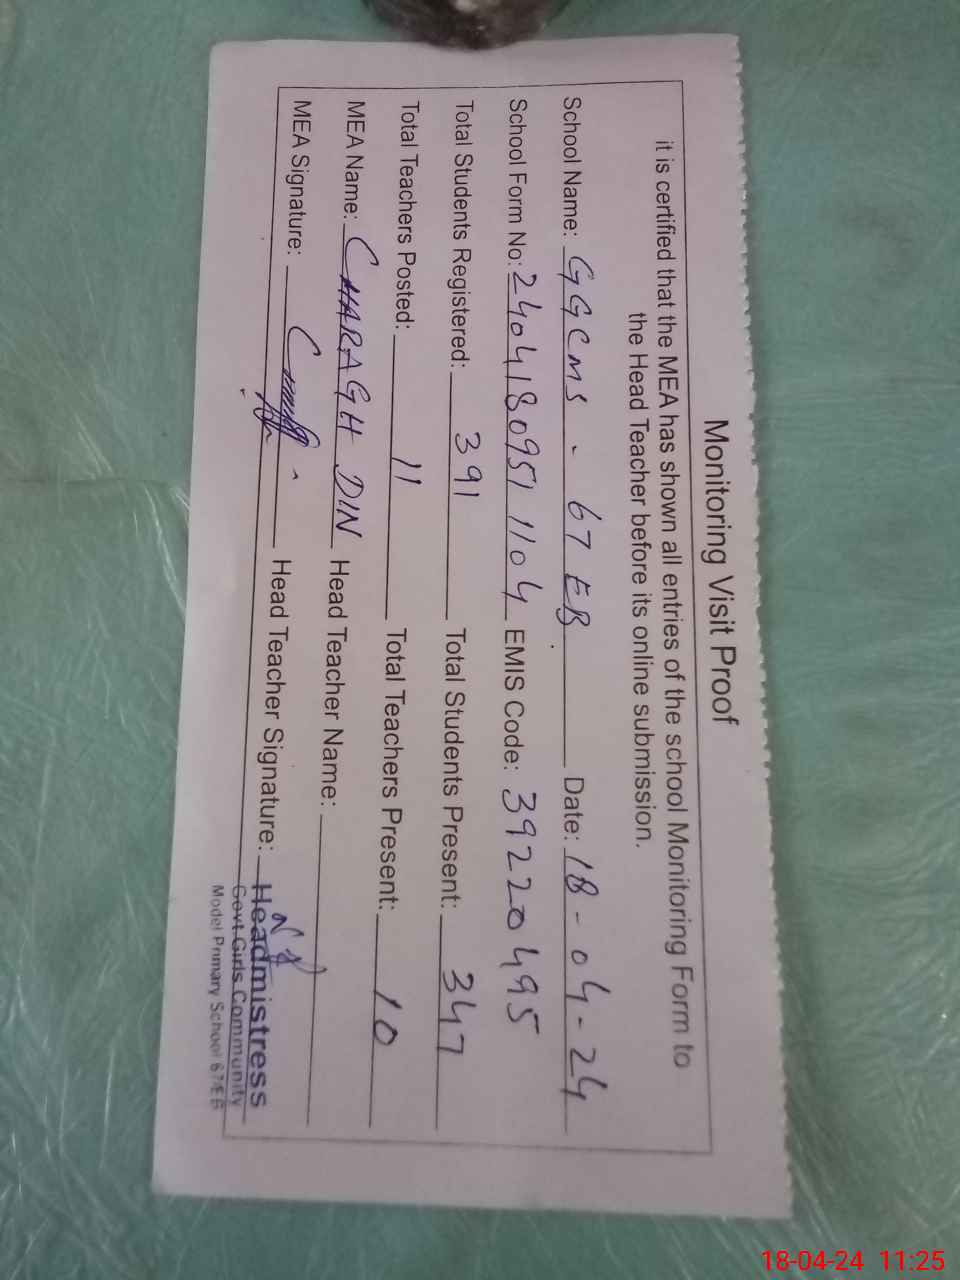 Monitoring Visit Proof
it is certified that the MEA has shown all entries of the school Monitoring Form to
the Head Teacher before its online submission.
School Name: GGCMS - 67 EB Date: 18-04-24
School Form No: 2404180951104 EMIS Code: 39220495
Total Students Registered: 391 Total Students Present: 347
Total Teachers Posted: 11 Total Teachers Present: 10
MEA Name: CHARAGH DIN Head Teacher Name:
MEA Signature: Head Teacher Signature:
Headmistress
Govt Girls Community
Model Primary School 67/EB
18-04-24 11:25